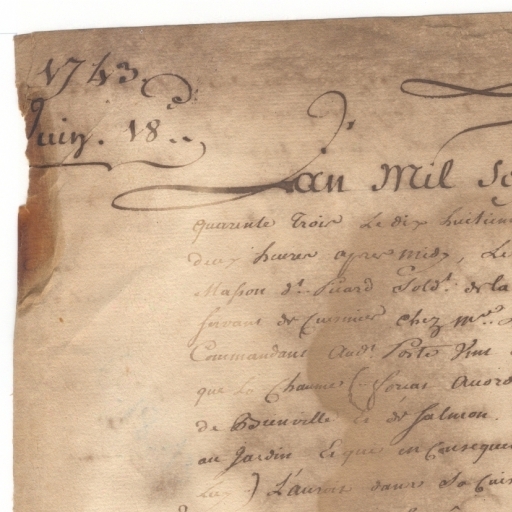 1743.
Juin. 18..
L'an Mil Se
quarante Trois Le dix huitiem
deux heures apres midy, Le
Masson dt. Picard Soldt. de la
servant de Cuisinier Chez Mr.
Commandant Audt. Poste Vint
que La Chaume
de Bienville Et de Salmon.
au Jardin Et que en Consequen
luy) L'auroit dans Sa Cuis